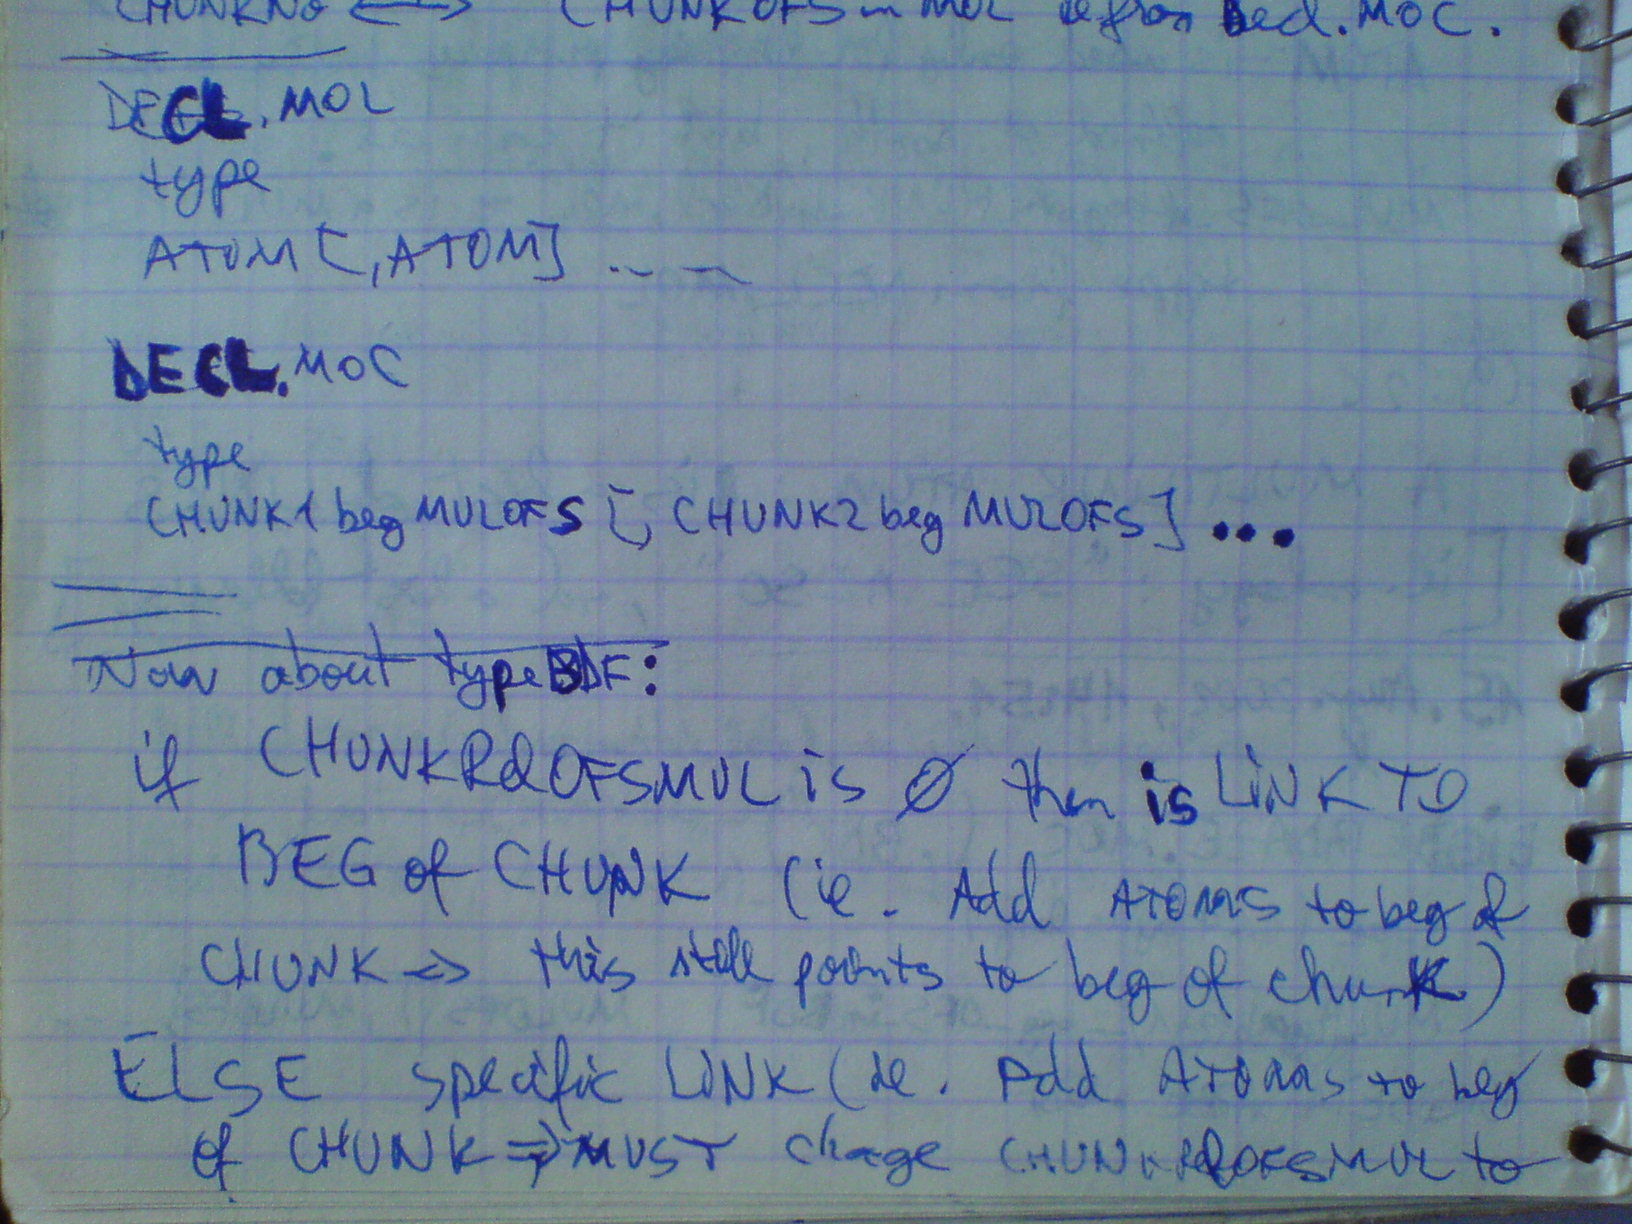 CHUNKNo <=> CHUNKOFS in MOL is from Decl.MOC.
DECL.MOL
type
ATOM [,ATOM] ...
DECL.MOC
type
CHUNK1 beg MULOFS [, CHUNK2 beg MULOFS] ...
Now about type BDF:
if CHUNKRdOFSMUL is Ø then is LINK TO
BEG of CHUNK (ie. Add ATOMS to beg of
CHUNK => this still points to beg of chunk)
ELSE specific LINK (ie. Add ATOMS to beg
of CHUNK => MUST change CHUNKRdOFSMUL to